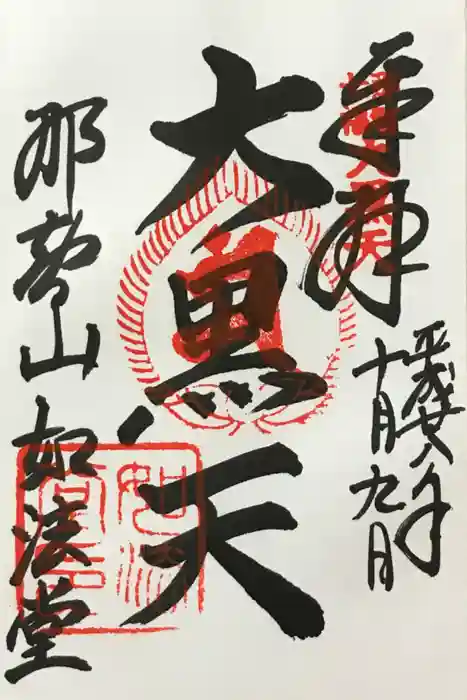 奉拝
平成廿八年
十月九日
大黒天
那智山 如法堂